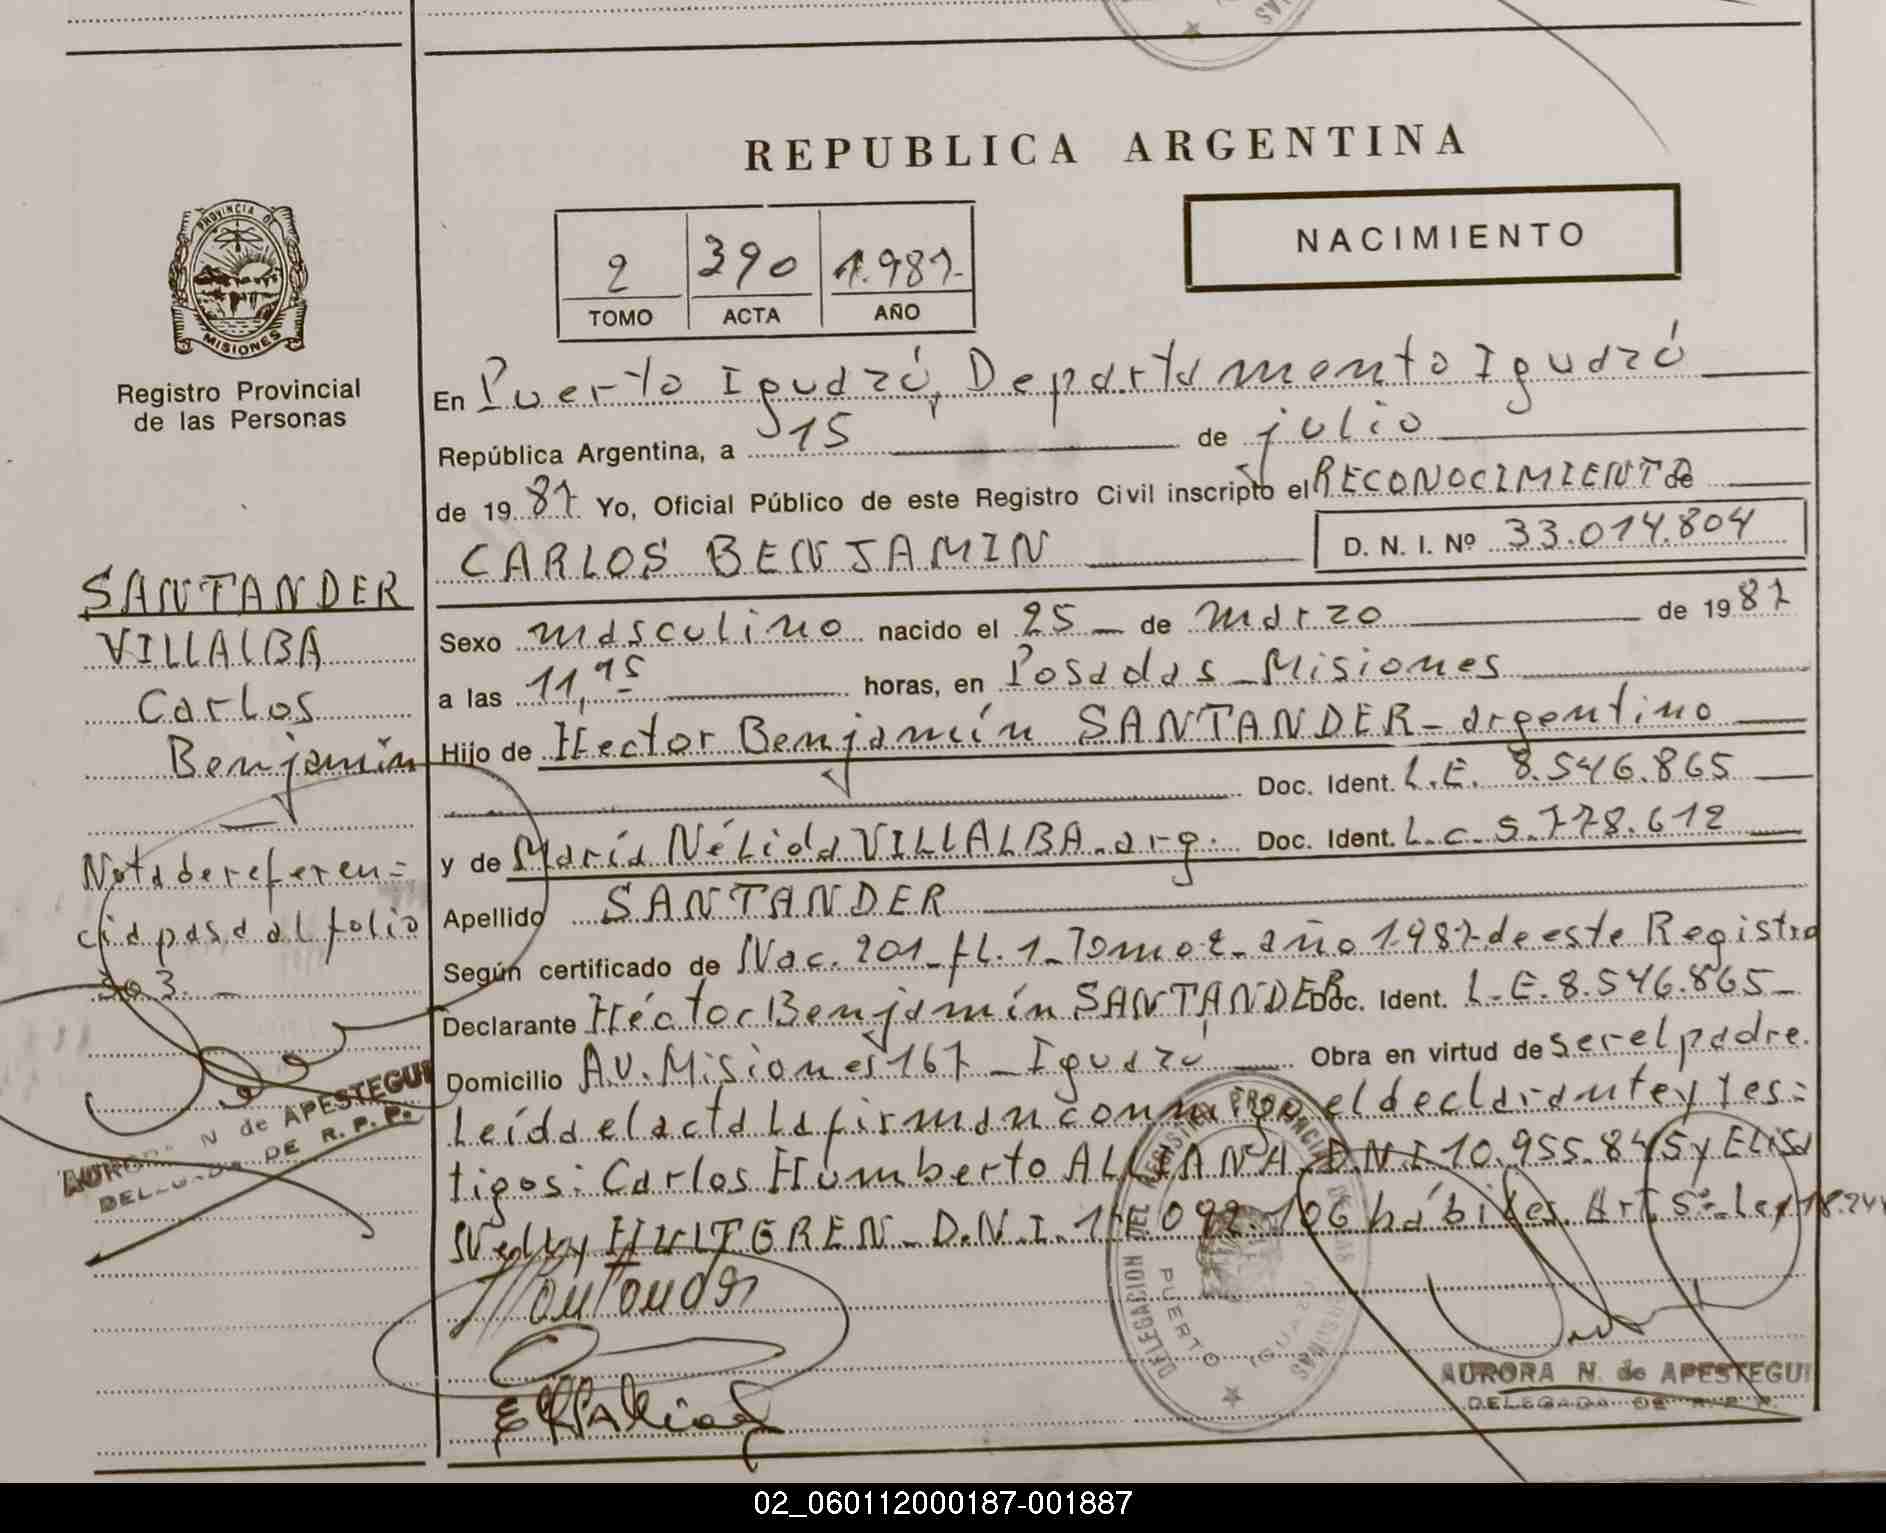 REPUBLICA ARGENTINA
PROVINCIA DE
MISIONES
Registro Provincial
de las Personas
2 390 1.987-
TOMO ACTA AÑO
NACIMIENTO
En Puerto Iguazú, Departamento Iguazú
República Argentina, a 15 de julio
de 1987 Yo, Oficial Público de este Registro Civil inscripto el RECONOCIMIENTO de
CARLOS BENJAMIN
D. N. I. Nº 33.014.804
Sexo masculino nacido el 25 de Marzo de 1987
a las 11,45 horas, en Posadas - Misiones
Hijo de Hector Benjamín SANTANDER - argentino
Doc. Ident. L.E. 8.546.865
y de María Nélida VILLALBA - arg. Doc. Ident. L.C. 5.778.612
Apellido SANTANDER
Según certificado de Nac. 201 - fl. 1 - Tomo 2 - año 1987 de este Registro
Declarante Héctor Benjamín SANTANDER Doc. Ident. L.E. 8.546.865 -
Domicilio Av. Misiones 167 - Iguazú Obra en virtud de ser el padre.
Leída el acta la firman conmigo el declarante y tes=
tigos: Carlos Humberto ALLIANA D.N.I 10.955.845 y Elisa
Nelly HULTGREN - D.N.I. 106 hábiles Art. 5º - Ley 18.24
SANTANDER
VILLALBA
Carlos
Benjamín
Nota de referen=
cia pasa al folio
303. -
AURORA N de APESTEGUI
DELEGADA DE R. P. P.
DELEGACION DEL REGISTRO PROVINCIAL DE LAS PERSONAS
PUERTO IGUAZU
AURORA N. de APESTEGUI
DELEGADA DE R. P. P.
02_060112000187-001887